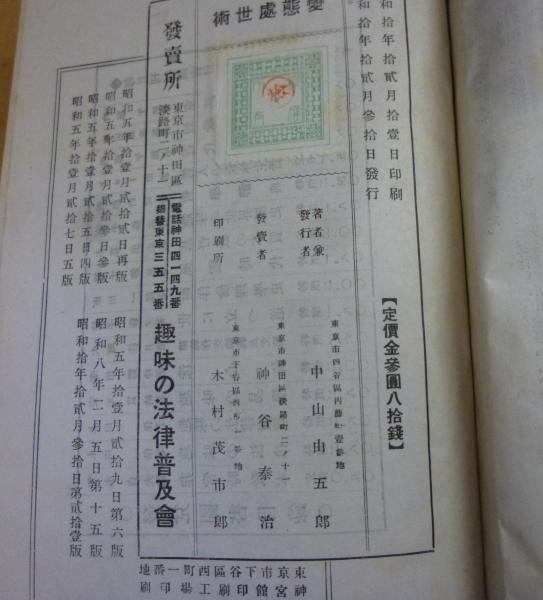 和拾年拾貳月拾壹日印刷
和拾年拾貳月參拾日發行
【定價金參圓八拾錢】
變態處世術
著者兼
發行者
東京市四谷區內藤町壹番地
中山由五郎
發賣者
東京市神田區淡路町二ノ十一
神谷泰治
印刷所
東京市下谷區西町一番地
木村茂市郎
發賣所
東京市神田區
淡路町二ノ十一
電話神田四一四九番
振替東京三五五番
趣味の法律普及會
昭和五年拾壹月貳拾貳日再版
昭和五年拾壹月貳拾參日參版
昭和五年拾壹月貳拾五日四版
昭和五年拾壹月貳拾七日五版
昭和五年拾壹月貳拾九日第六版
昭和八年二月五日第十五版
昭和拾年拾貳月參拾日第貳拾壹版
東京市下谷區西町一番地
神宮館印刷工場印刷